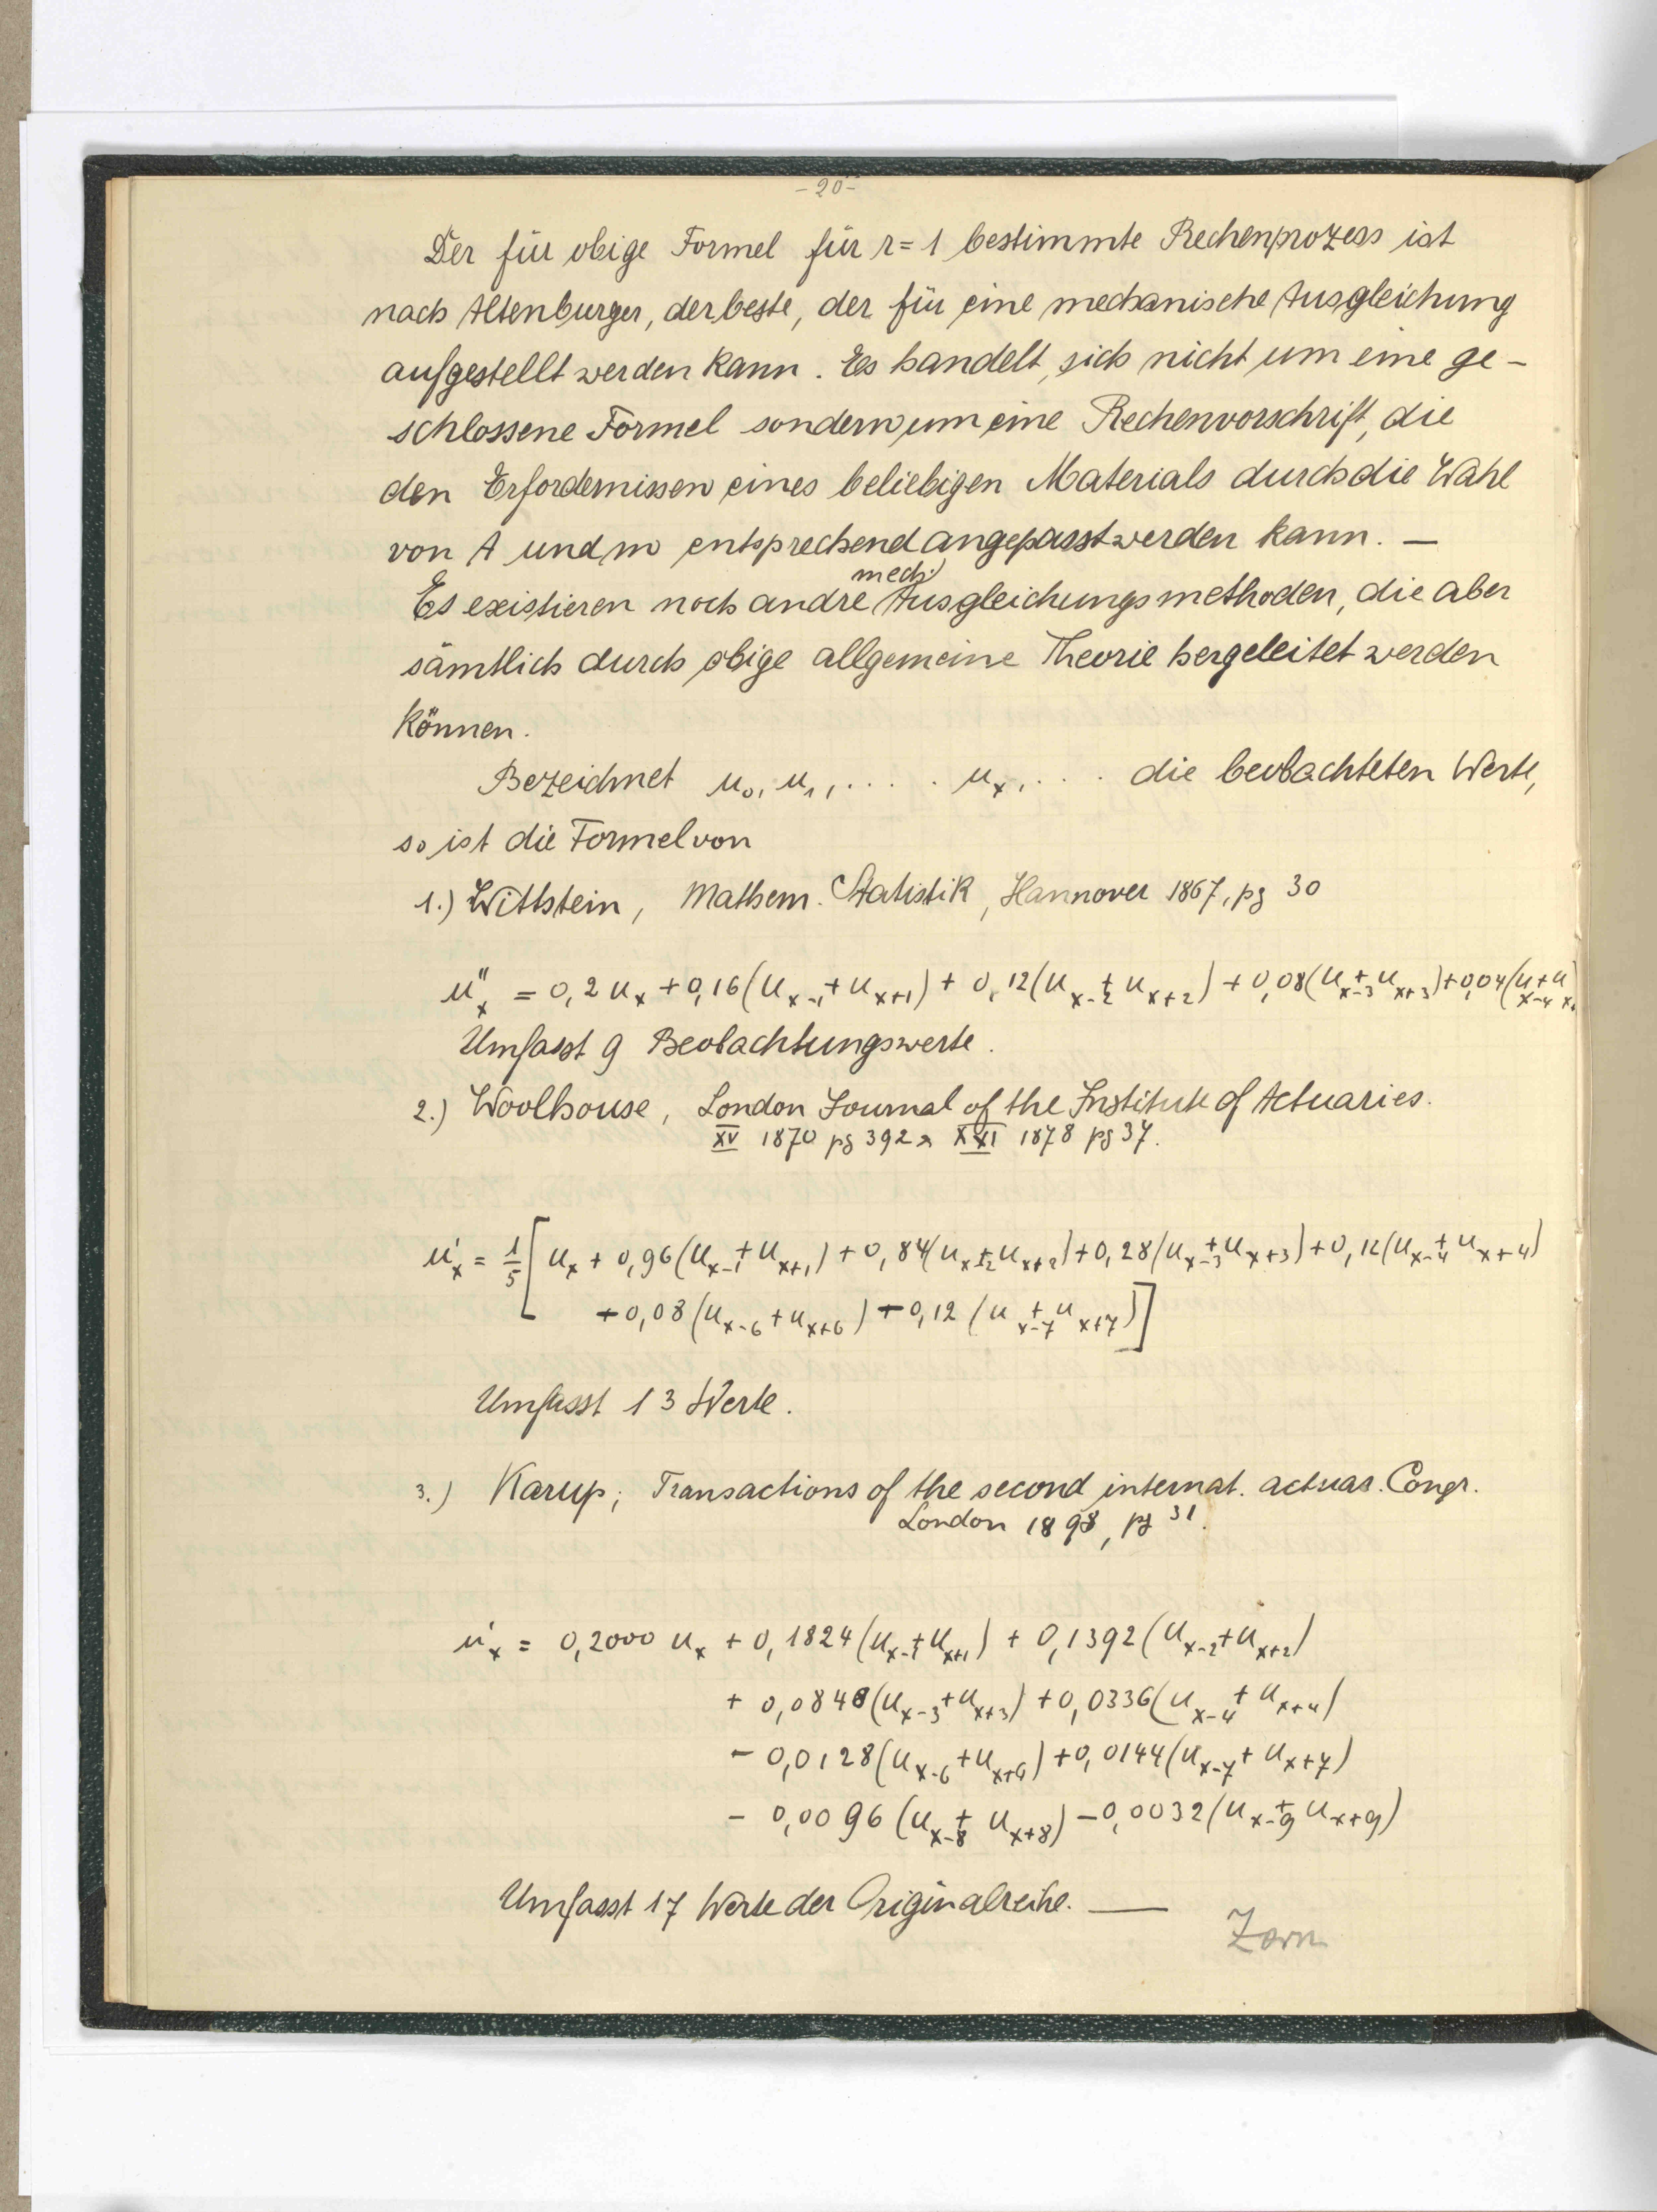 -20-
Der für obige Formel für r=1 bestimmte Rechenprozess ist
nach Altenburger, der beste, der für eine mechanische Ausgleichung
aufgestellt werden kann. Es handelt sich nicht um eine ge-
schlossene Formel sondern um eine Rechenvorschrift, die
den Erfordernissen eines beliebigen Materials durch die Wahl
von A und m entsprechend angepasst werden kann. —
mech.
Es existieren noch andre Ausgleichungsmethoden, die aber
sämtlich durch obige allgemeine Theorie hergeleitet werden
können.
Bezeichnet u₀, u₁, . . . . uₓ, . . . die beobachteten Werte,
so ist die Formel von
1.) Wittstein, Mathem. Statistik, Hannover 1867, pg 30
u''ₓ = 0,2 uₓ + 0,16(uₓ₋₁ + uₓ₊₁) + 0,12(uₓ₋₂ + uₓ₊₂) + 0,08(uₓ₋₃ + uₓ₊₃) + 0,04(uₓ₋₄ + uₓ₊
Umfasst 9 Beobachtungswerte.
2.) Woolhouse, London Journal of the Institute of Actuaries.
XV 1870 pg 392 & XXI 1878 pg 37.
u'ₓ = 1/5 [uₓ + 0,96(uₓ₋₁ + uₓ₊₁) + 0,84(uₓ₋₂ + uₓ₊₂) + 0,28(uₓ₋₃ + uₓ₊₃) + 0,12(uₓ₋₄ + uₓ₊₄)
+ 0,08(uₓ₋₆ + uₓ₊₆) + 0,12(uₓ₋₇ + uₓ₊₇)]
Umfasst 13 Werte.
3.) Karup; Transactions of the second internat. actuar. Congr.
London 1898, pg 31.
u'ₓ = 0,2000 uₓ + 0,1824(uₓ₋₁ + uₓ₊₁) + 0,1392(uₓ₋₂ + uₓ₊₂)
+ 0,0848(uₓ₋₃ + uₓ₊₃) + 0,0336(uₓ₋₄ + uₓ₊₄)
- 0,0128(uₓ₋₆ + uₓ₊₆) + 0,0144(uₓ₋₇ + uₓ₊₇)
- 0,0096(uₓ₋₈ + uₓ₊₈) - 0,0032(uₓ₋₉ + uₓ₊₉)
Umfasst 17 Werte der Originalreihe. —
Zorn